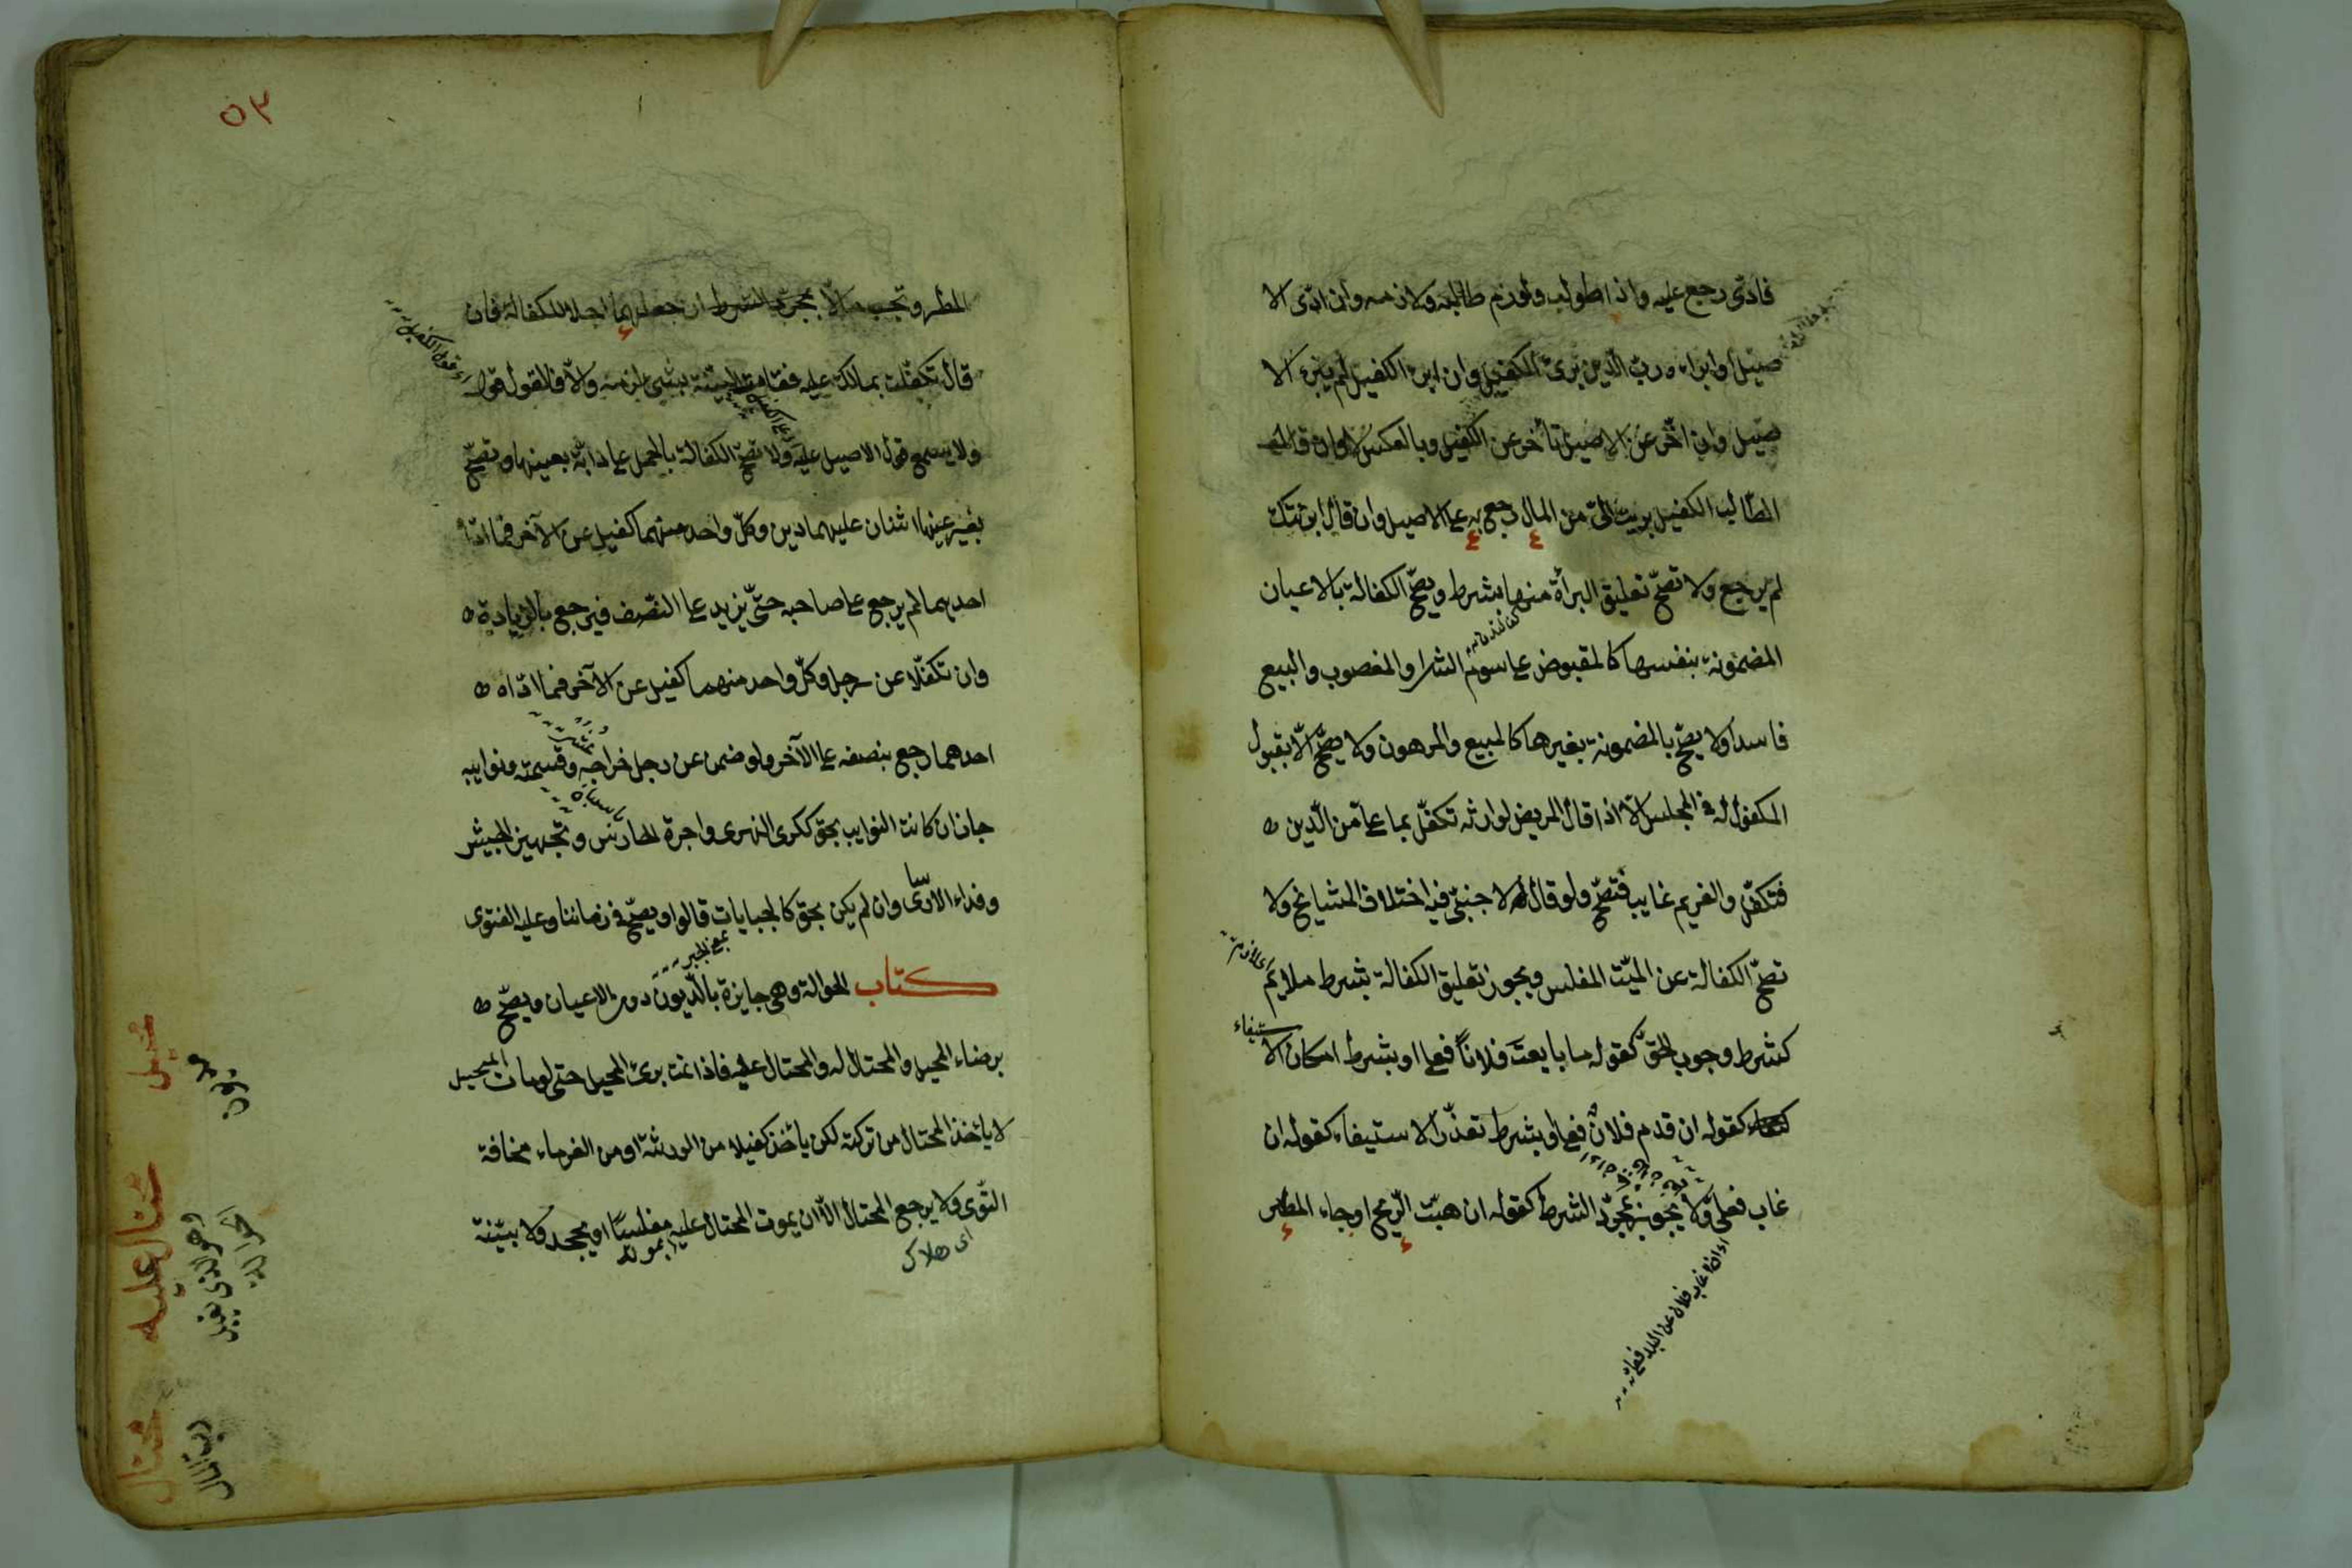 فادّى رجع عليه واذا طولب ولوزم طالبه ولازمه وان ادّى الا
صيل او ابراه ربّ الدّين برئ الكفيل وان ابرئ الكفيل لم يبرء الا
صيل وان اخّر عن الاصيل تأخّر عن الكفيل وبالعكس لا وان قال
الطّالب للكفيل برئت الىّ من المال رجع به على الاصيل وان قال ابرئتك
لم يرجع ولا تصحّ تعليق البرأة منها بشرط ويصحّ الكفالة بالاعيان
المضمونة بنفسها كالمقبوض على سوم الشرا والمغصوب والمبيع
فاسدا ولا يصحّ بالمضمونة بغيرها كالمبيع والمرهون ولا يصحّ الّا بقبول
المكفول له فى المجلس الّا اذا قال المريض لوارثه تكفّل بما علىّ من الدّين
فتكفّل والغريم غايب فتصحّ ولو قال لاجنبىّ فيه اختلاف المشايخ ولا
تصحّ الكفالة عن الميّت المفلس ويجوز تعليق الكفالة بشرط ملايم
كشرط وجوب الحقّ كقوله ما بايعت فلاناً فعلى او بشرط امكان الا
ستيفاء
كقوله ان قدم فلان فعلى او بشرط تعذّر الاستيفاء كقوله ان
غاب فعلىّ ولا يجوز بمجرّد الشرط كقوله ان هبّت الرّيح او جاء المطر
اى اذا غاب فلان عن البلد فعلىّ
٥٣
المطر وتجب حالّا بمجرّد الشرط ان جعلهما اجلا للكفالة فان
قال تكفّلت بمالك عليه فقامت البيّنة بشئ لزمه والّا فالقول قول
الكفيل
ولا يسمع قول الاصيل عليه ولا تصحّ الكفالة بالحمل على دابّة بعينها وتصحّ
بغير عينها اثنان عليهما دين وكلّ واحد منهما كفيل عن الآخر فما ادّا
احدهما لم يرجع على صاحبه حتّى يزيد على النّصف فيرجع بالزيادة
وان تكفّلا عن رجل وكلّ واحد منهما كفيل عن الآخر فما ادّاه
احدهما رجع بنصفه على الآخر ولو ضمن عن رجل خراجه وقسمته ونوايبه
جاز ان كانت النوايب بحق ككرى النهر واجرة الحارس وتجهيز الجيش
وفداء الاسارى وان لم يكن بحق كالجبايات قالوا ويصحّ فى زماننا وعليه الفتوى
كتاب الحوالة وهى جايزة بالدّيون دون الاعيان ويصحّ
برضاء المحيل والمحتال له والمحتال عليه فاذا تمت برئ المحيل حتى لو مات المحيل
لا يأخذ المحتال من تركته لكن يأخذ كفيلا من الورثة او من الغرماء مخافة
التّوى ولا يرجع المحتال الّا ان يموت المحتال عليه مفلسا او يجحد ولا بيّنة
اى هلاك
بموته
محيل
مديون
محتال عليه
وهو الذى يقبل
الحوالة
محتال
رب المال